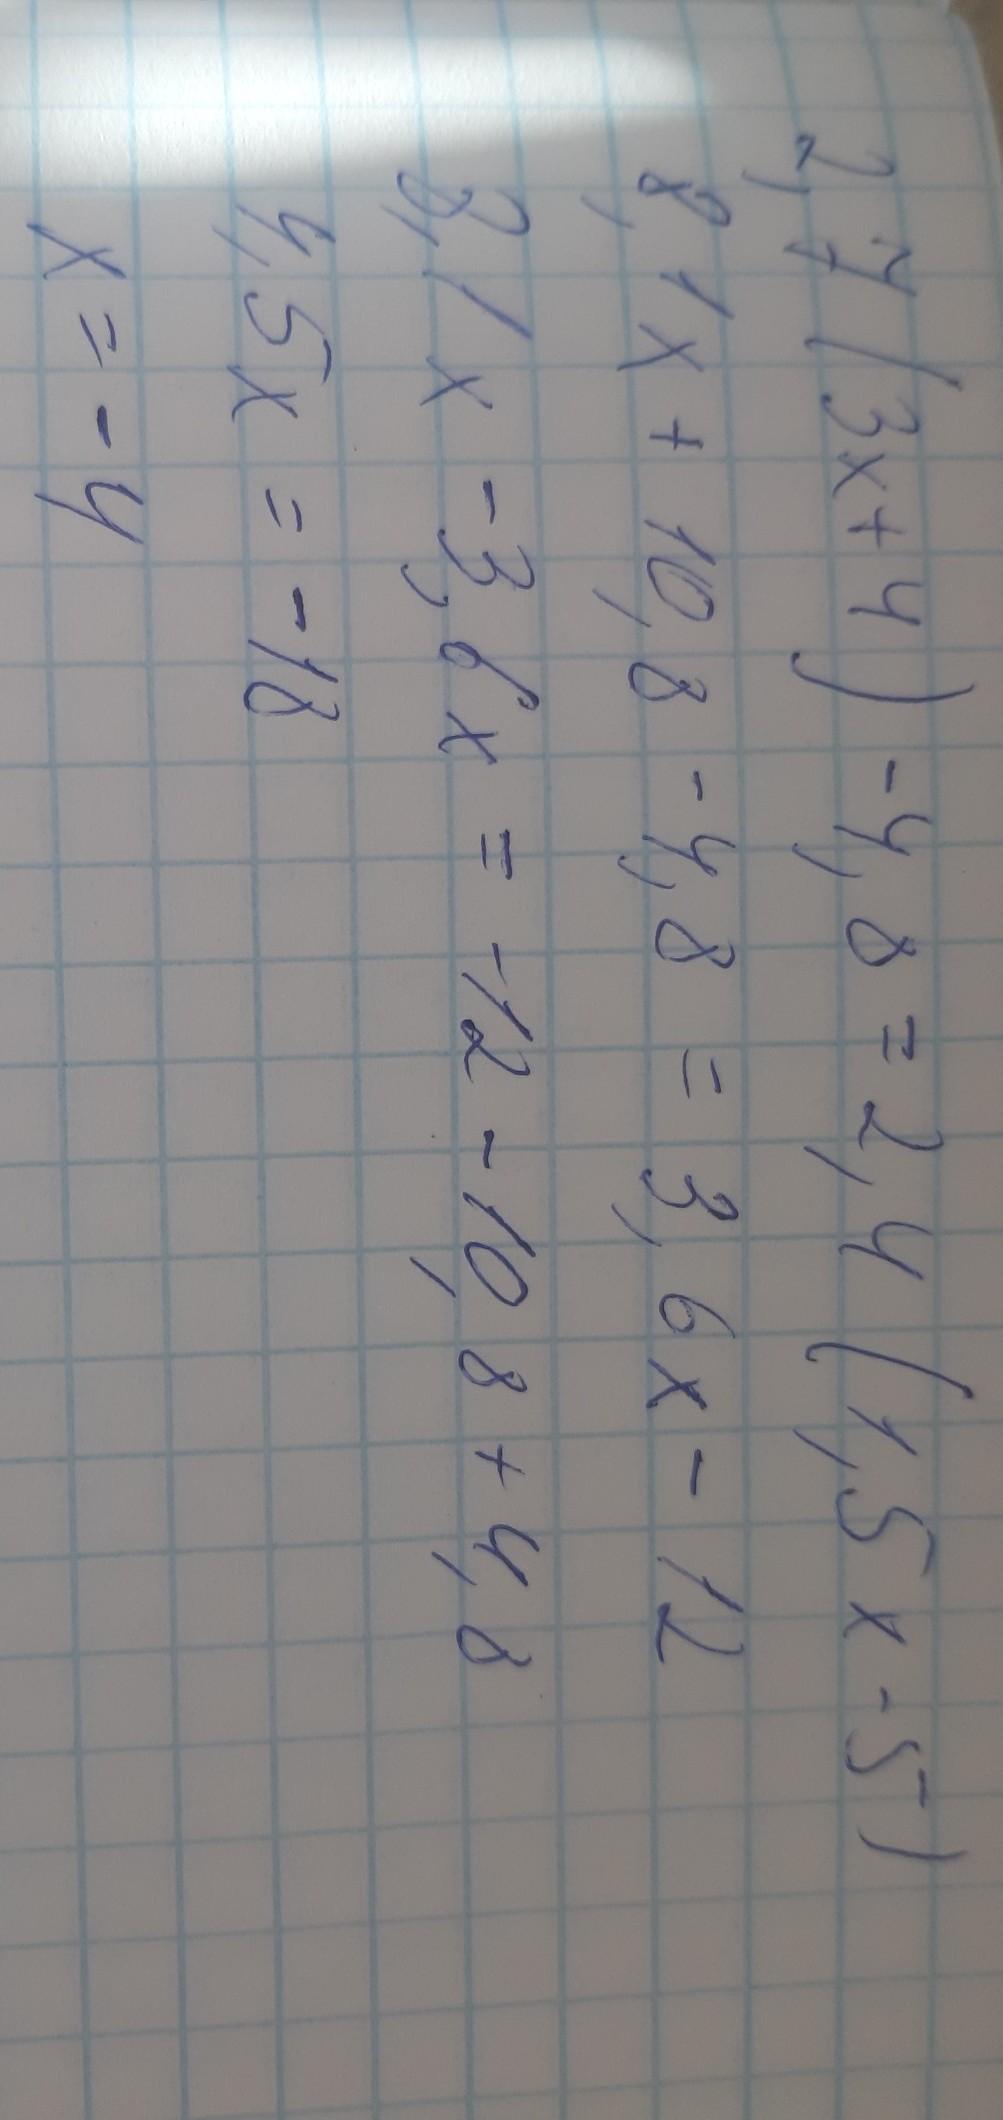 2,7(3x+4)-4,8=2,4(1,5x-5)
8,1x+10,8-4,8=3,6x-12
8,1x-3,6x=-12-10,8+4,8
4,5x=-18
x=-4